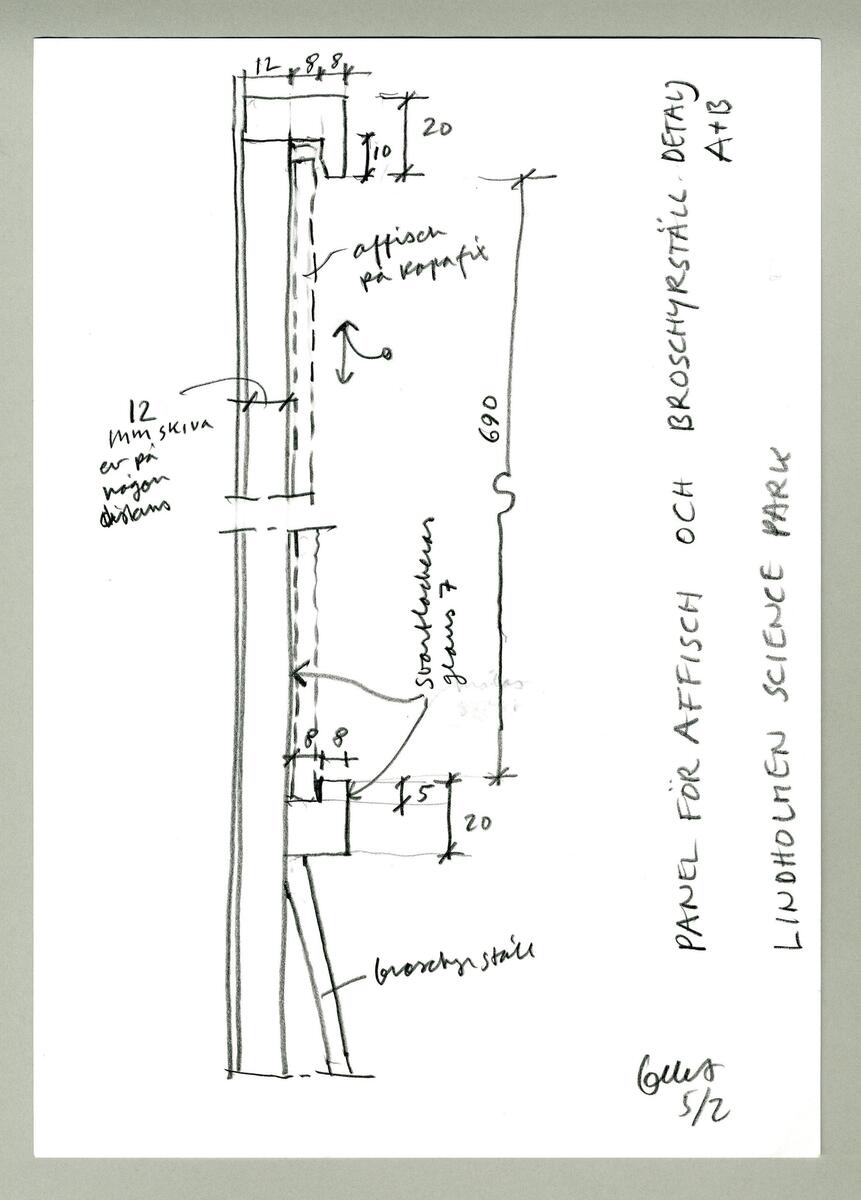 12 8 8
20
10
affisch
på kapafix
12
mm skiva
ev på
någon
distans
690
svartlackeras
glans 7
8 8
5
20
broschyrställ
PANEL FÖR AFFISCH OCH BROSCHYRSTÄLL. DETALJ
A+B
LINDHOLMEN SCIENCE PARK
5/2